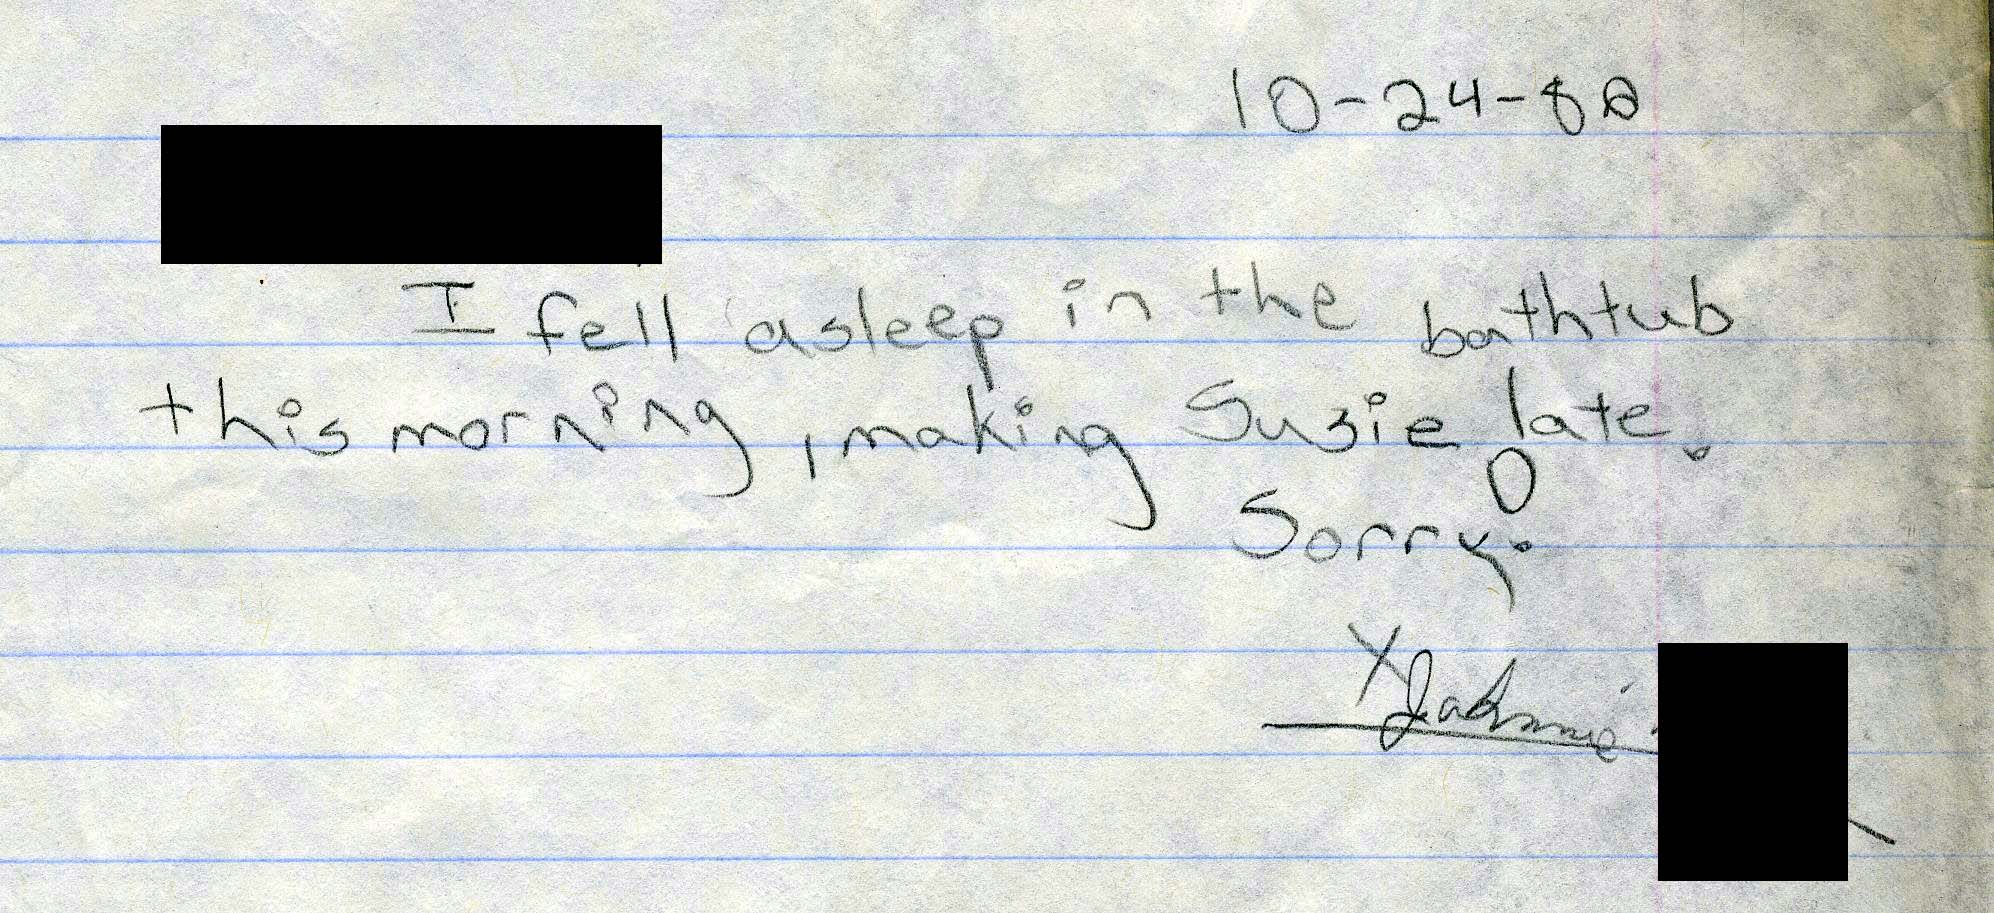 10-24-88
I fell asleep in the bathtub
this morning, making Susie late.
Sorry.
X Johnnie